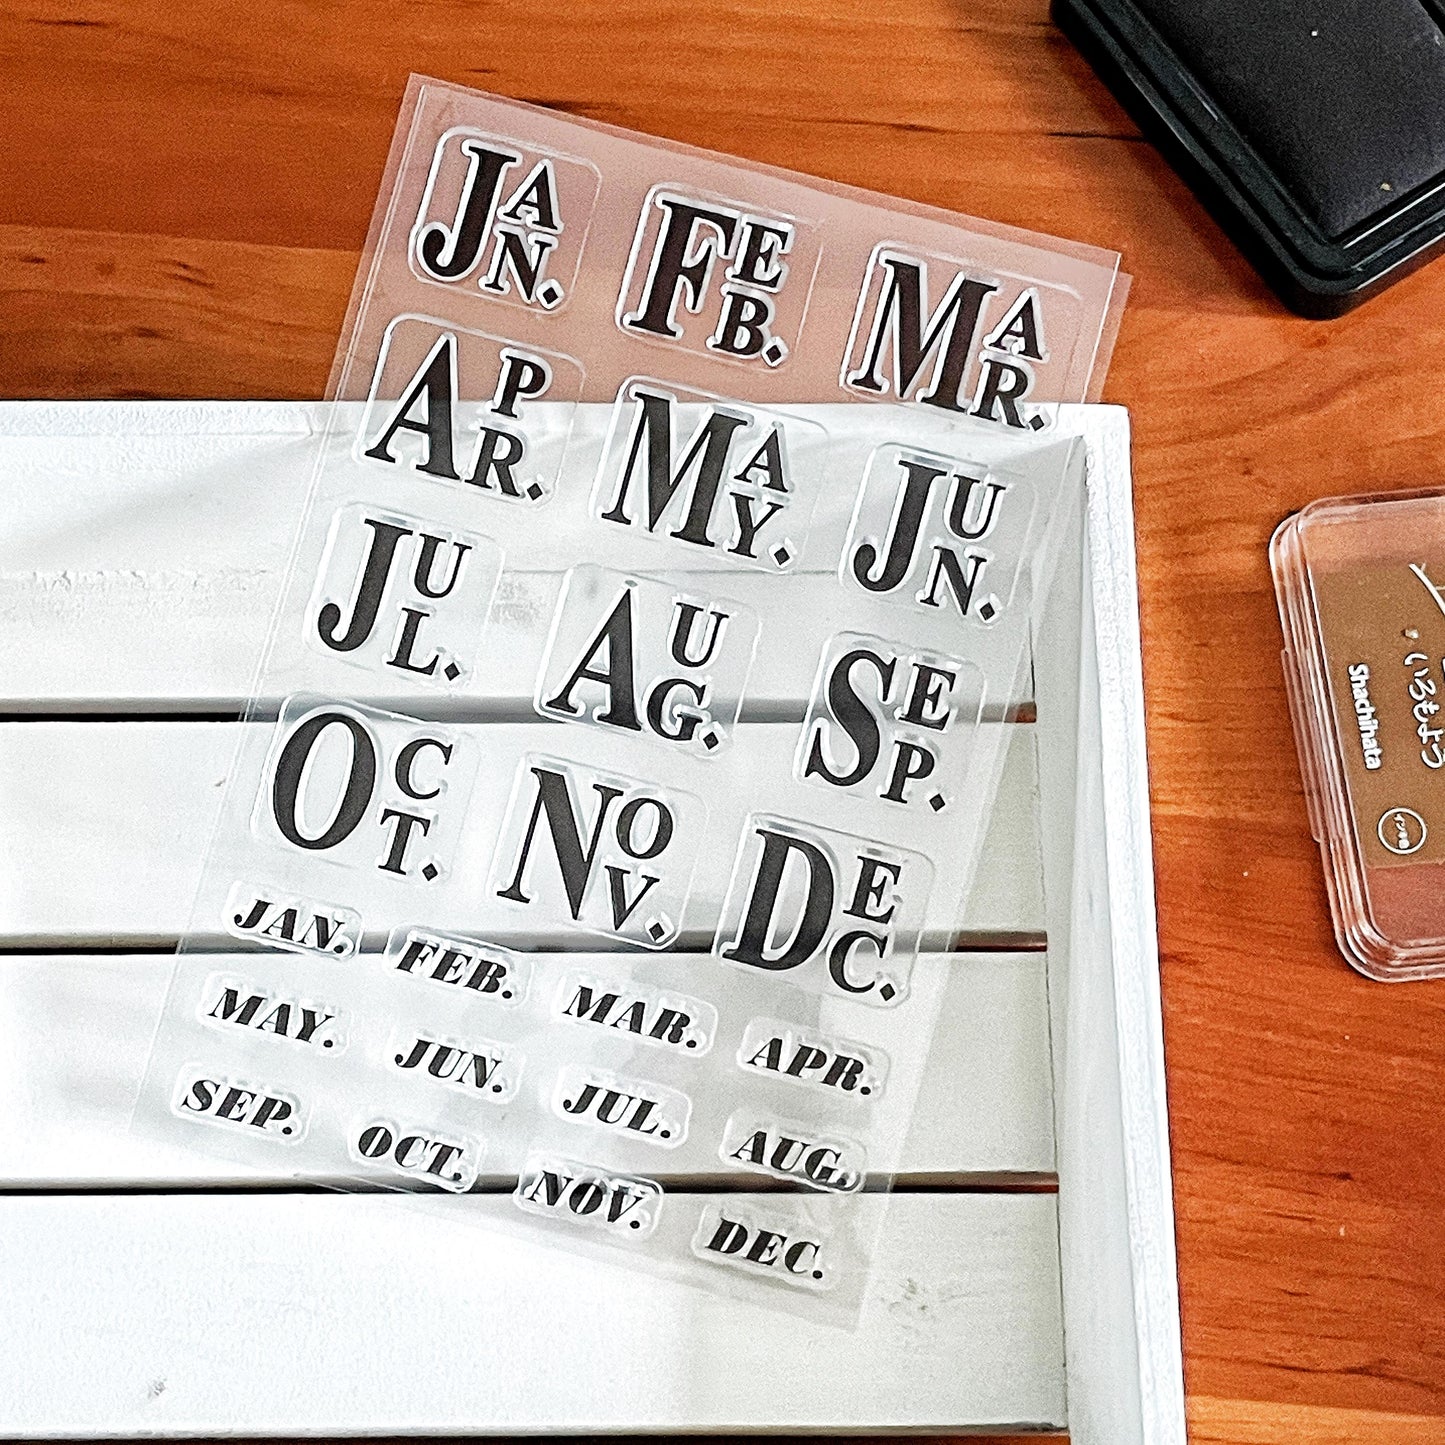 JAN. FEB. MAR.
APR. MAY. JUN.
JUL. AUG. SEP.
OCT. NOV. DEC.
JAN. FEB. MAR. APR.
MAY. JUN. JUL. AUG.
SEP. OCT. NOV. DEC.
いろもよう
Shachihata